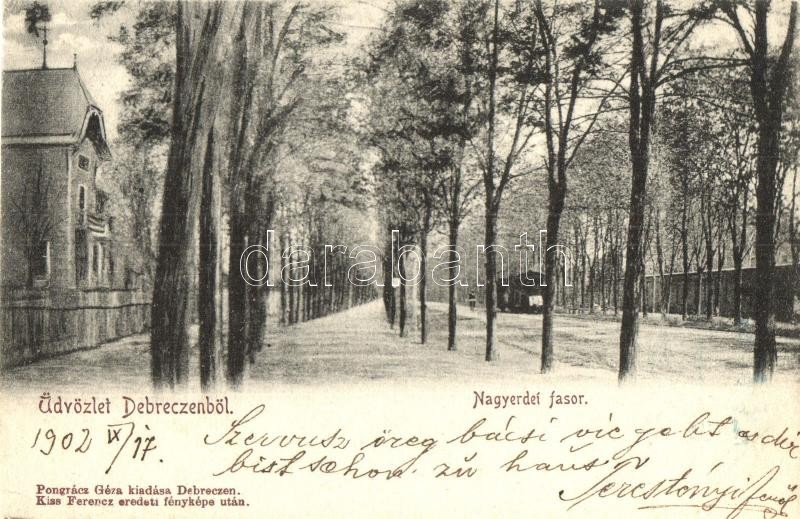 darabanth
Üdvözlet Debreczenből.
Nagyerdei fasor.
1902 IX/17.
Szervusz öreg bácsi vie geht es dir
bist schon zu haus
Pongrácz Géza kiadása Debreczen.
Kiss Ferencz eredeti fényképe után.